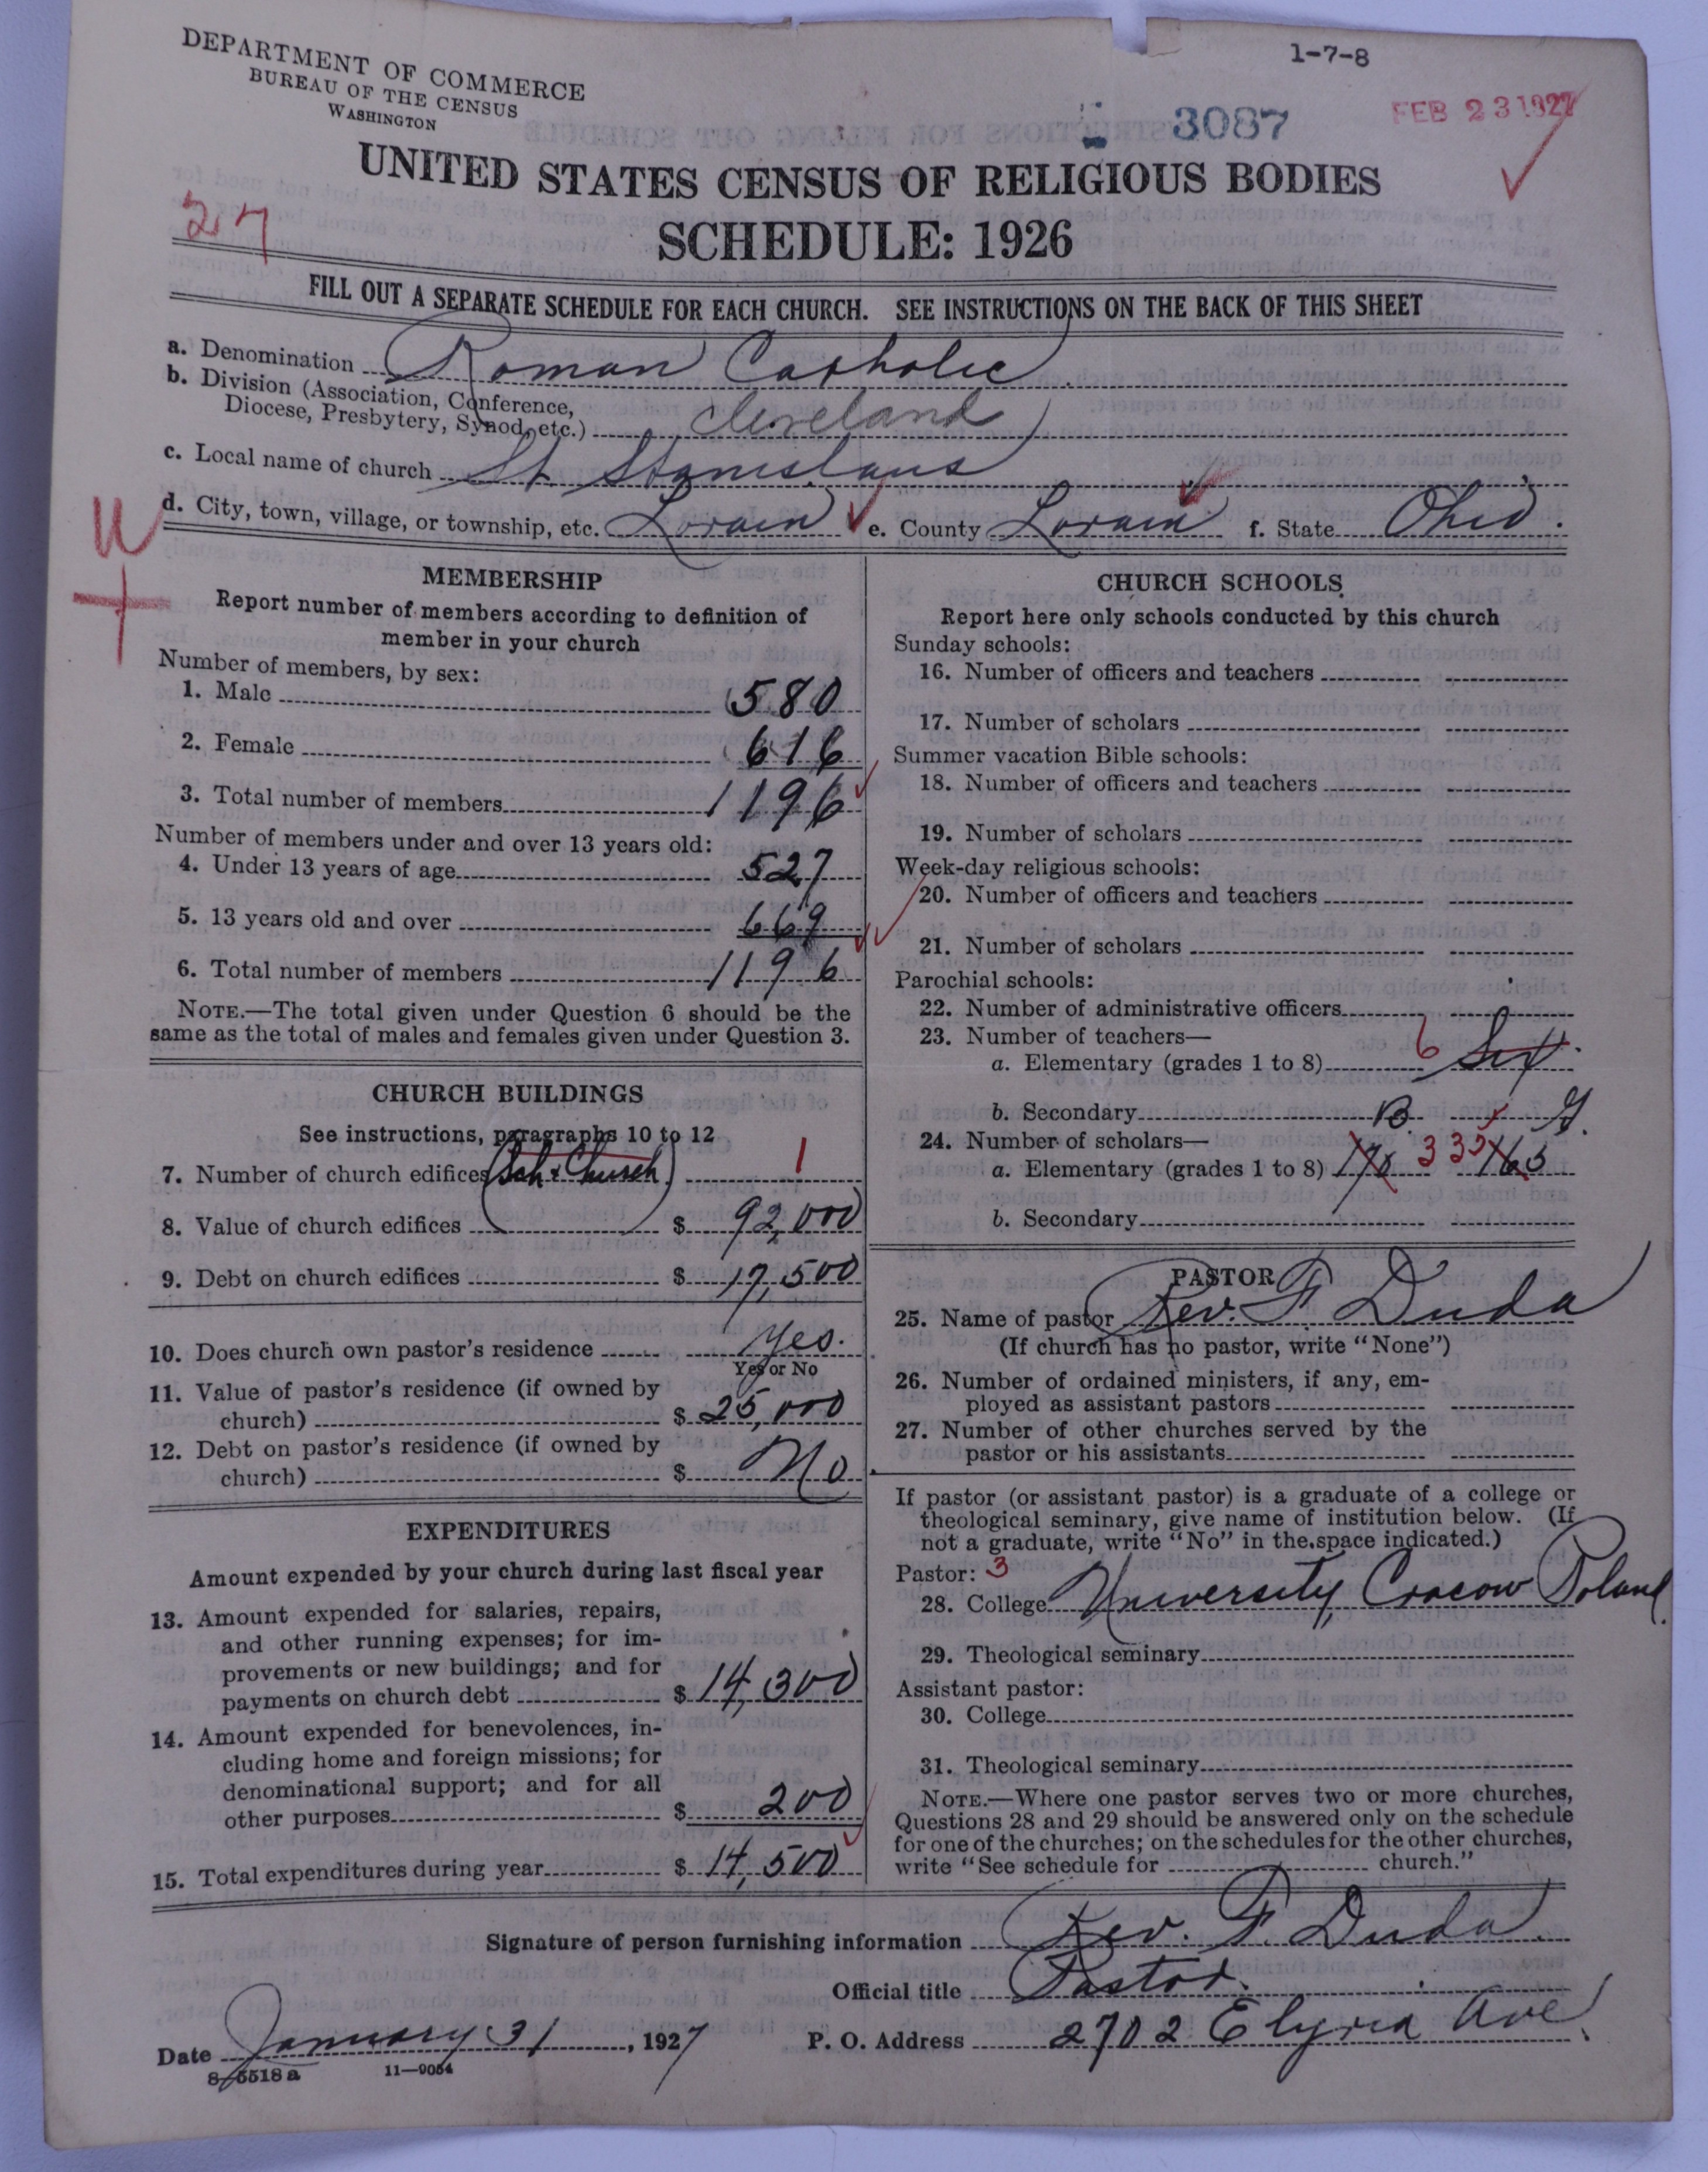 DEPARTMENT OF COMMERCE
BUREAU OF THE CENSUS
WASHINGTON
1-7-8
3087
FEB 23 1927
UNITED STATES CENSUS OF RELIGIOUS BODIES
27
SCHEDULE: 1926
FILL OUT A SEPARATE SCHEDULE FOR EACH CHURCH. SEE INSTRUCTIONS ON THE BACK OF THIS SHEET
a. Denomination Roman Catholic
b. Division (Association, Conference,
Diocese, Presbytery, Synod, etc.) Cleveland
c. Local name of church St. Stanislaus
d. City, town, village, or township, etc. Lorain e. County Lorain f. State Ohio.
MEMBERSHIP
Report number of members according to definition of
member in your church
Number of members, by sex:
1. Male 580
2. Female 616
3. Total number of members 1196
Number of members under and over 13 years old:
4. Under 13 years of age 527
5. 13 years old and over 669
6. Total number of members 1196
NOTE.—The total given under Question 6 should be the
same as the total of males and females given under Question 3.
CHURCH BUILDINGS
See instructions, paragraphs 10 to 12
7. Number of church edifices (Sch & Church) 1
8. Value of church edifices $ 92,000
9. Debt on church edifices $ 17,500
10. Does church own pastor's residence Yes.
Yes or No
11. Value of pastor's residence (if owned by
church) $ 25,000
12. Debt on pastor's residence (if owned by
church) $ No
EXPENDITURES
Amount expended by your church during last fiscal year
13. Amount expended for salaries, repairs,
and other running expenses; for im-
provements or new buildings; and for
payments on church debt $ 14,300
14. Amount expended for benevolences, in-
cluding home and foreign missions; for
denominational support; and for all
other purposes $ 200
15. Total expenditures during year $ 14,500
CHURCH SCHOOLS
Report here only schools conducted by this church
Sunday schools:
16. Number of officers and teachers
17. Number of scholars
Summer vacation Bible schools:
18. Number of officers and teachers
19. Number of scholars
Week-day religious schools:
20. Number of officers and teachers
21. Number of scholars
Parochial schools:
22. Number of administrative officers
23. Number of teachers—
a. Elementary (grades 1 to 8) 6 Six.
b. Secondary B. G.
24. Number of scholars—
a. Elementary (grades 1 to 8) 170 335 165
b. Secondary
PASTOR
25. Name of pastor Rev. F. Duda
(If church has no pastor, write "None")
26. Number of ordained ministers, if any, em-
ployed as assistant pastors
27. Number of other churches served by the
pastor or his assistants
If pastor (or assistant pastor) is a graduate of a college or
theological seminary, give name of institution below. (If
not a graduate, write "No" in the space indicated.)
Pastor: 3
28. College University Cracow Poland
29. Theological seminary
Assistant pastor:
30. College
31. Theological seminary
NOTE.—Where one pastor serves two or more churches,
Questions 28 and 29 should be answered only on the schedule
for one of the churches; on the schedules for the other churches,
write "See schedule for church."
Signature of person furnishing information Rev. F. Duda
Official title Pastor.
Date January 31, 1927 P. O. Address 2702 Elyria Ave.
8-5518a 11-9054